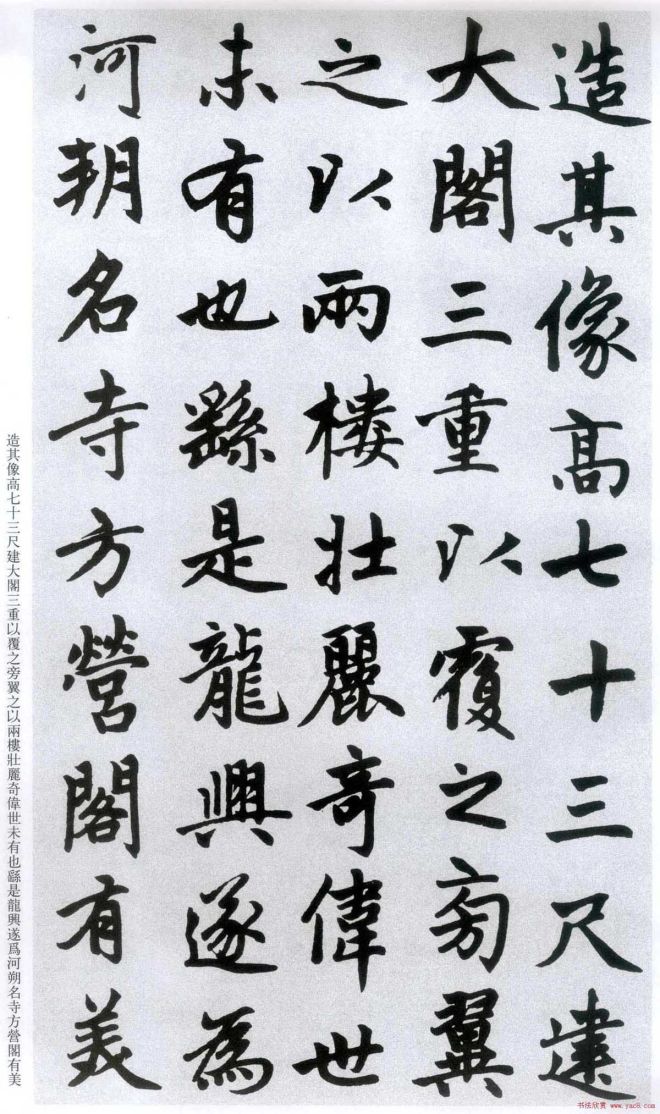 造其像高七十三尺建
大閣三重以覆之旁翼
之以兩樓壯麗奇偉世
未有也繇是龍興遂為
河朔名寺方營閣有美
造其像高七十三尺建大閣三重以覆之旁翼之以兩樓壯麗奇偉世未有也繇是龍興遂爲河朔名寺方營閣有美
书法欣赏 www.yac8.com